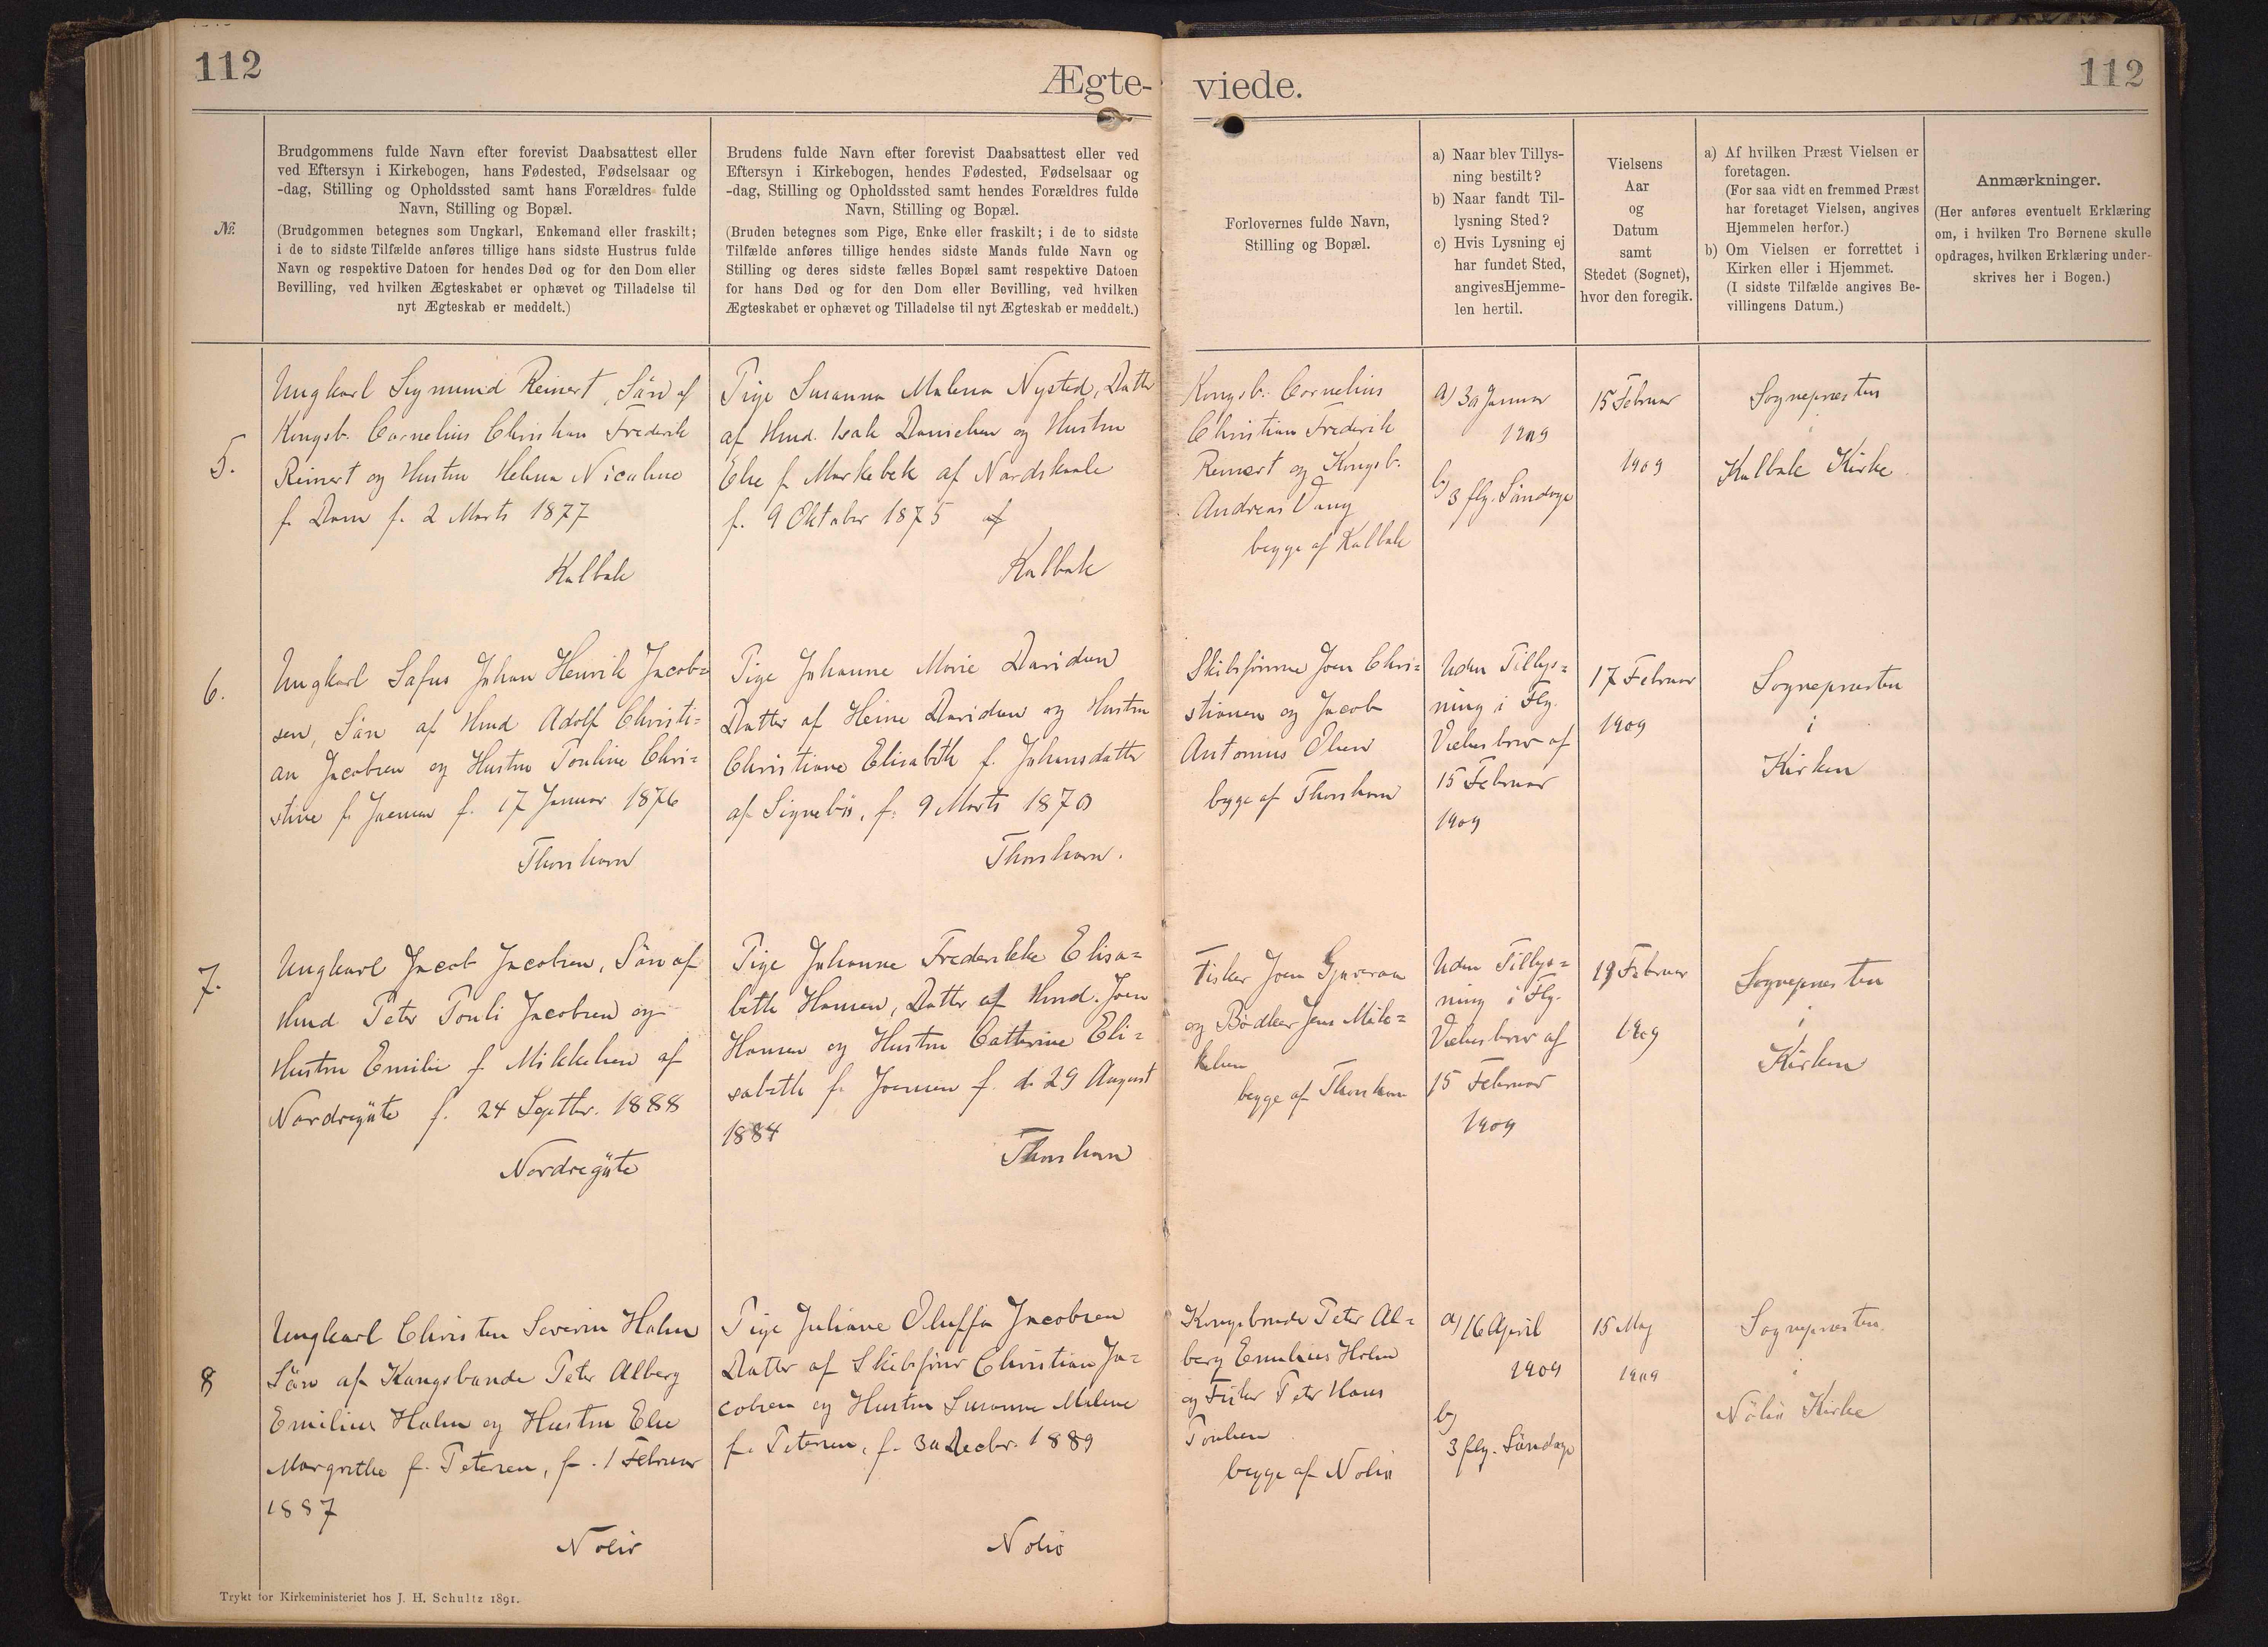 112
Ægte-
viede.
112
№
Brudgommens fulde Navn efter forevist Daabsattest eller
ved Eftersyn i Kirkebogen, hans Fødested, Fødselsaar og
-dag, Stilling og Opholdssted samt hans Forældres fulde
Navn, Stilling og Bopæl.
(Brudgommen betegnes som Ungkarl, Enkemand eller fraskilt;
i de to sidste Tilfælde anføres tillige hans sidste Hustrus fulde
Navn og respektive Datoen for hendes Død og for den Dom eller
Bevilling, ved hvilken Ægteskabet er ophævet og Tilladelse til
nyt Ægteskab er meddelt.)
Brudens fulde Navn efter forevist Daabsattest eller ved
Eftersyn i Kirkebogen, hendes Fødested, Fødselsaar og
-dag, Stilling og Opholdssted samt hendes Forældres fulde
Navn, Stilling og Bopæl.
(Bruden betegnes som Pige, Enke eller fraskilt; i de to sidste
Tilfælde anføres tillige hendes sidste Mands fulde Navn og
Stilling og deres sidste fælles Bopæl samt respektive Datoen
for hans Død og for den Dom eller Bevilling, ved hvilken
Ægteskabet er ophævet og Tilladelse til nyt Ægteskab er meddelt.)
Forlovernes fulde Navn,
Stilling og Bopæl.
a) Naar blev Tillys-
ning bestilt?
b) Naar fandt Til-
lysning Sted?
c) Hvis Lysning ej
har fundet Sted,
angivesHjemme-
len hertil.
Vielsens
Aar
og
Datum
samt
Stedet (Sognet),
hvor den foregik.
a) Af hvilken Præst Vielsen er
foretagen.
(For saa vidt en fremmed Præst
har foretaget Vielsen, angives
Hjemmelen herfor.)
b) Om Vielsen er forrettet i
Kirken eller i Hjemmet.
(I sidste Tilfælde angives Be-
villingens Datum.)
Anmærkninger.
(Her anføres eventuelt Erklæring
om, i hvilken Tro Børnene skulle
opdrages, hvilken Erklæring under-
skrives her i Bogen.)
5.
Ungkarl Sigmund Reinert, Sön af
Kongsb. Cornelius Christian Frederik
Reinert og Hustru Helena Nicoline
f. Dam f. 2 Marts 1877
Kalbak
Pige Susanna Malena Nysted, Datter
af Hmd. Isak Danielsen og Hustru
Else f. Markebek af Nordskaale
f. 9 Oktober 1875 af
Kalbak
Kongsb. Cornelius
Christian Frederik
Reinert og Kongsb.
Andreas Vang
begge af Kalbak
a) 30 Januar
1909
b) 3 flg. Söndage
15 Februar
1909
Sognepræsten
i
Kalbak Kirke
6.
Ungkarl Sofus Johan Henrik Jacob=
sen, Sön af Hmd Adolf Christi=
an Jacobsen og Hustru Pouline Chri=
stine f. Joensen f. 17 Januar 1876
Thorshavn
Pige Johanne Marie Davidsen
Datter af Heine Davidsen og Hustru
Christiane Elisabeth f. Johansdatter
af Signebö, f. 9 Marts 1870
Thorshavn.
Skibsförerne Joen Chri=
stiansen og Jacob
Antonius Olsen
begge af Thorshavn
Uden Tillys=
ning i Flg.
Vielsesbrev af
15 Februar
1909
17 Februar
1909
Sognepræsten
i
Kirken
7.
Ungkarl Jacob Jacobsen, Sön af
Hmd Peter Pouli Jacobsen og
Hustru Emilie f Mikkelsen af
Nordregöte f. 24 Septbr. 1888
Nordregöte
Pige Johanne Frederikke Elisa=
beth Hansen, Datter af Hmd. Joen
Hansen og Hustru Cathrine Eli=
sabeth f. Joensen f. d. 29 August
1884
Thorshavn
Fisker Joen
og Bødker Jens Mik=
kelsen
begge af Thorshavn
Uden Tillys=
ning i Flg.
Vielsesbrev af
15 Februar
1909
19 Februar
1909
Sognepræsten
i
Kirken
8
Ungkarl Christen Severin Holm
Sön af Kongsbonde Peter Alberg
Emilius Holm og Hustru Else
Margrethe f. Petersen, f. 1 Februar
1887
Nolsö
Pige Juliane Oluffa Jacobsen
Datter af Skibsförer Christian Ja=
cobsen og Hustru Susanne Malene
f. Petersen, f. 30 Decbr. 1889
Nolsö
Kongsbonde Peter Al=
berg Emilius Holm
og Fisker Peter Hans
Poulsen
begge af Nolsö
a) 16 April
1909
b)
3 flg. Söndage
15 Maj
1909
Sognepræsten
i
Nölsö Kirke
Trykt for Kirkeministeriet hos J. H. Schultz 1891.